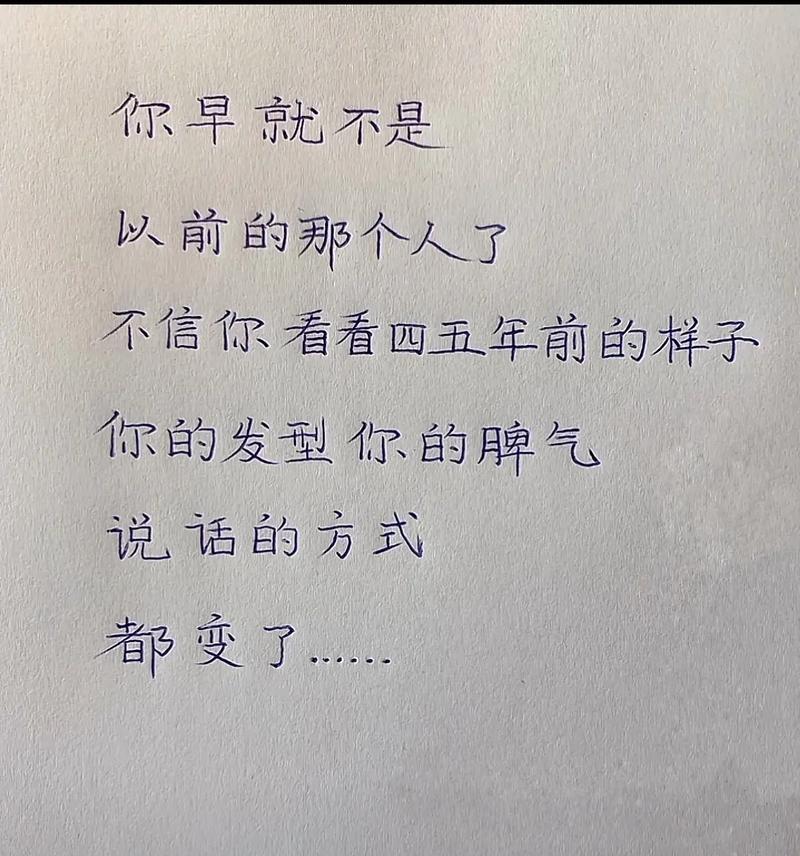 你早就不是
以前的那个人了
不信你看看四五年前的样子
你的发型你的脾气
说话的方式
都变了……